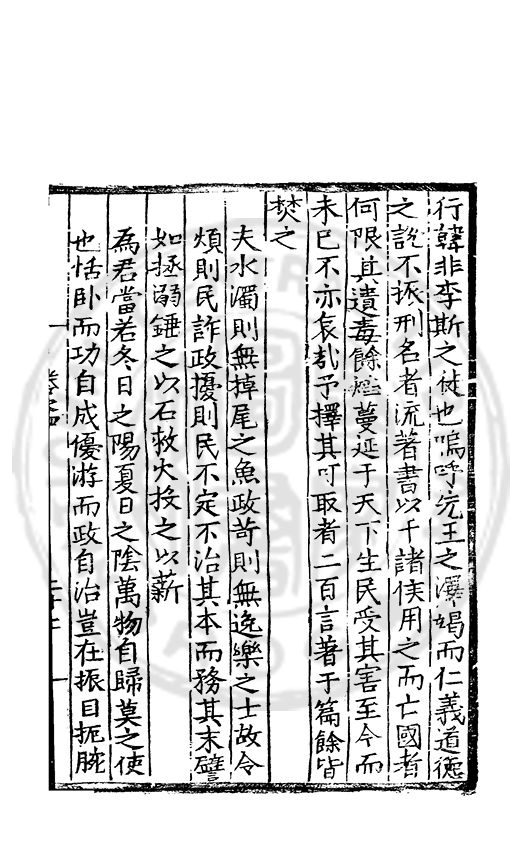 行韓非李斯之徒也嗚呼先王之澤竭而仁義道德
之說不振刑名者流著書以千諸侯用之而亡國者
何限其遺毒餘𤈷蔓延于天下生民受其害至今而
未已不亦哀哉予擇其可取者二百言著于篇餘皆
焚之
夫水濁則無掉尾之魚政苛則無逸樂之士故令
煩則民詐政擾則民不定不治其本而務其末譬
如拯溺錘之以石救火投之以薪
為君當若冬日之陽夏日之陰萬物自歸莫之使
也恬卧而功自成優游而政自治豈在振目扼腕